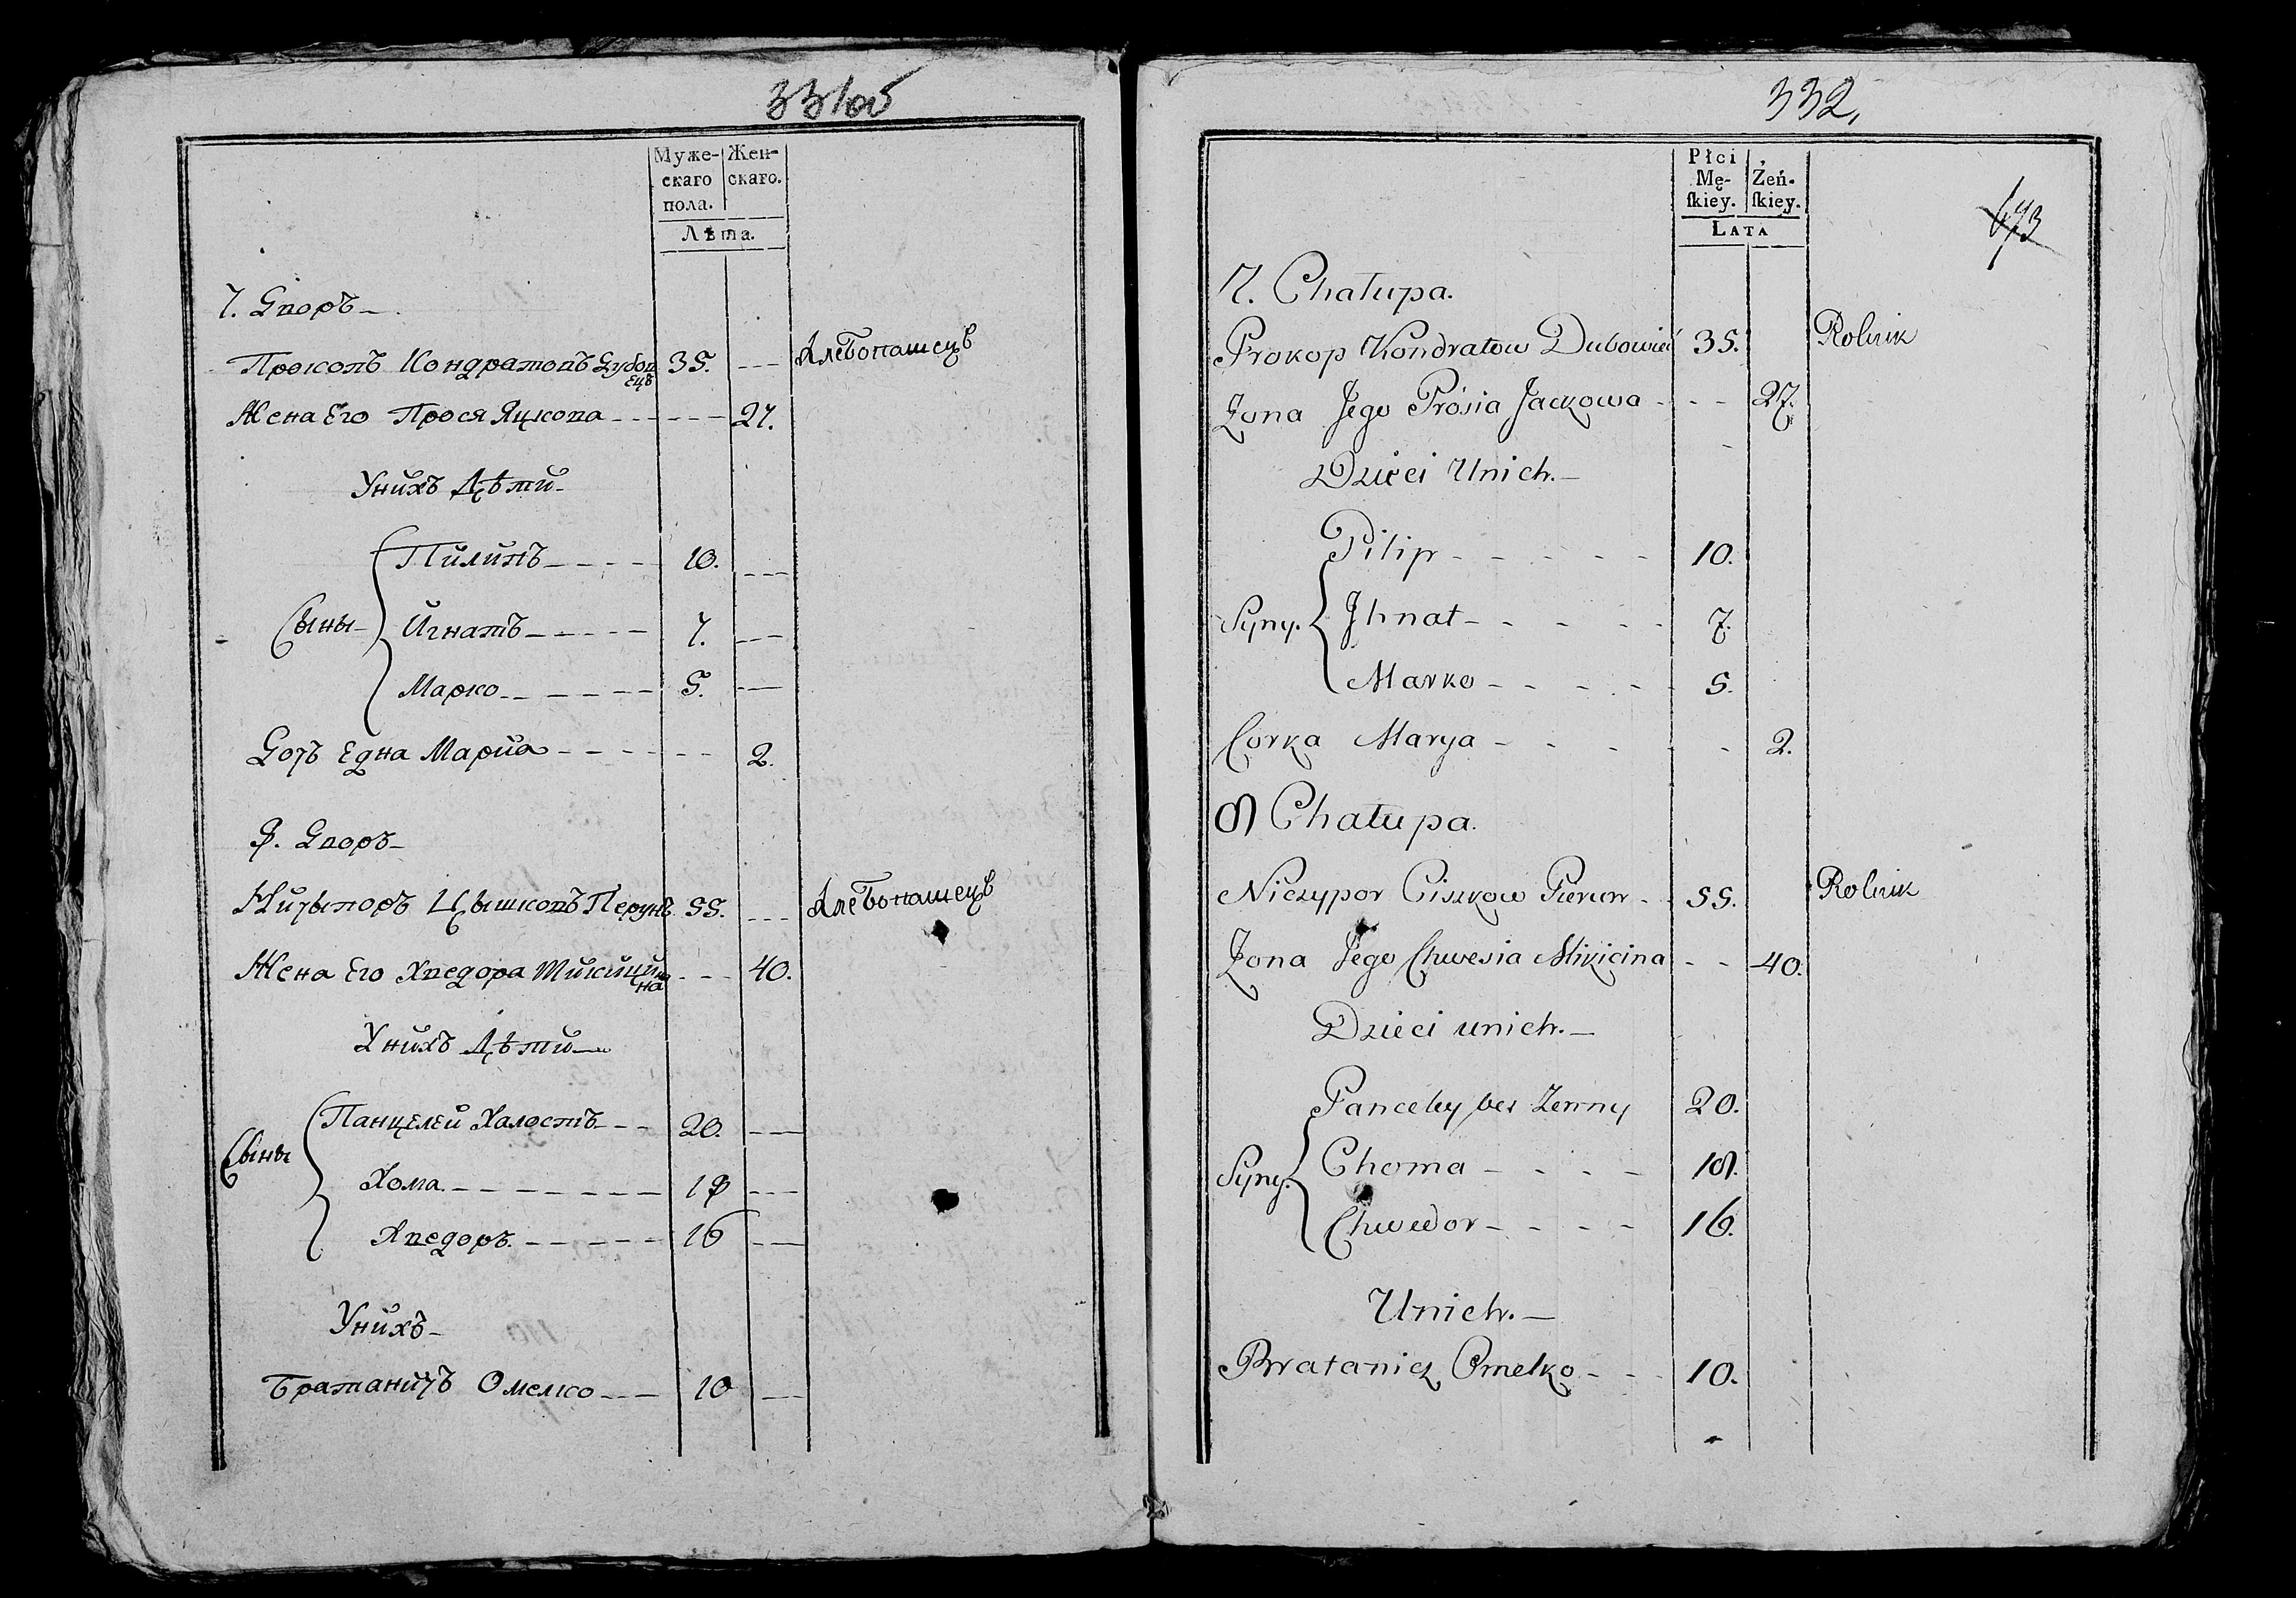 331об
Муже-
скаго
пола.
Жен-
скаго.
Лѣта.
7. Дворъ
Прокопъ Кондратовъ Дубов
ецъ 35. Хлебопашецъ
Жена Его Прося Яцкова 27.
Унихъ Дѣти
Пилипъ 10.
Сыны Игнатъ 7.
Марко 5.
Дочъ Една Мариа 2.
8. Дворъ
Ничыпоръ Цышковъ Перунъ 55. Хлебопашецъ
Жена Его Хведора Микици
на 40.
Унихъ Дѣти
Панцелей Халостъ 20.
Сыны
Хома 18
Хведоръ 16
Унихъ
Братаничъ Омелко 10
332.
673
Płci
Mę-
ſkiey.
Żeń-
ſkiey.
LATA
7. Chałupa.
Prokop Kondratow Dubowiec 35. Rolnik
Zona Jego Prósia Jackowa 27.
Dzieci Unich.
Pilip 10.
Syny. Jhnat 7.
Marko 5.
Corka Marya 2.
8 Chałupa.
Niczypor Ciszkow Pierun 55. Rolnik
Zona Jego Chwesia Mikicina 40.
Dzieci unich.
Panceley bez Zenny 20.
Syny. Choma 18.
Chwedor 16.
Unich.
Bratanicz Omelko 10.